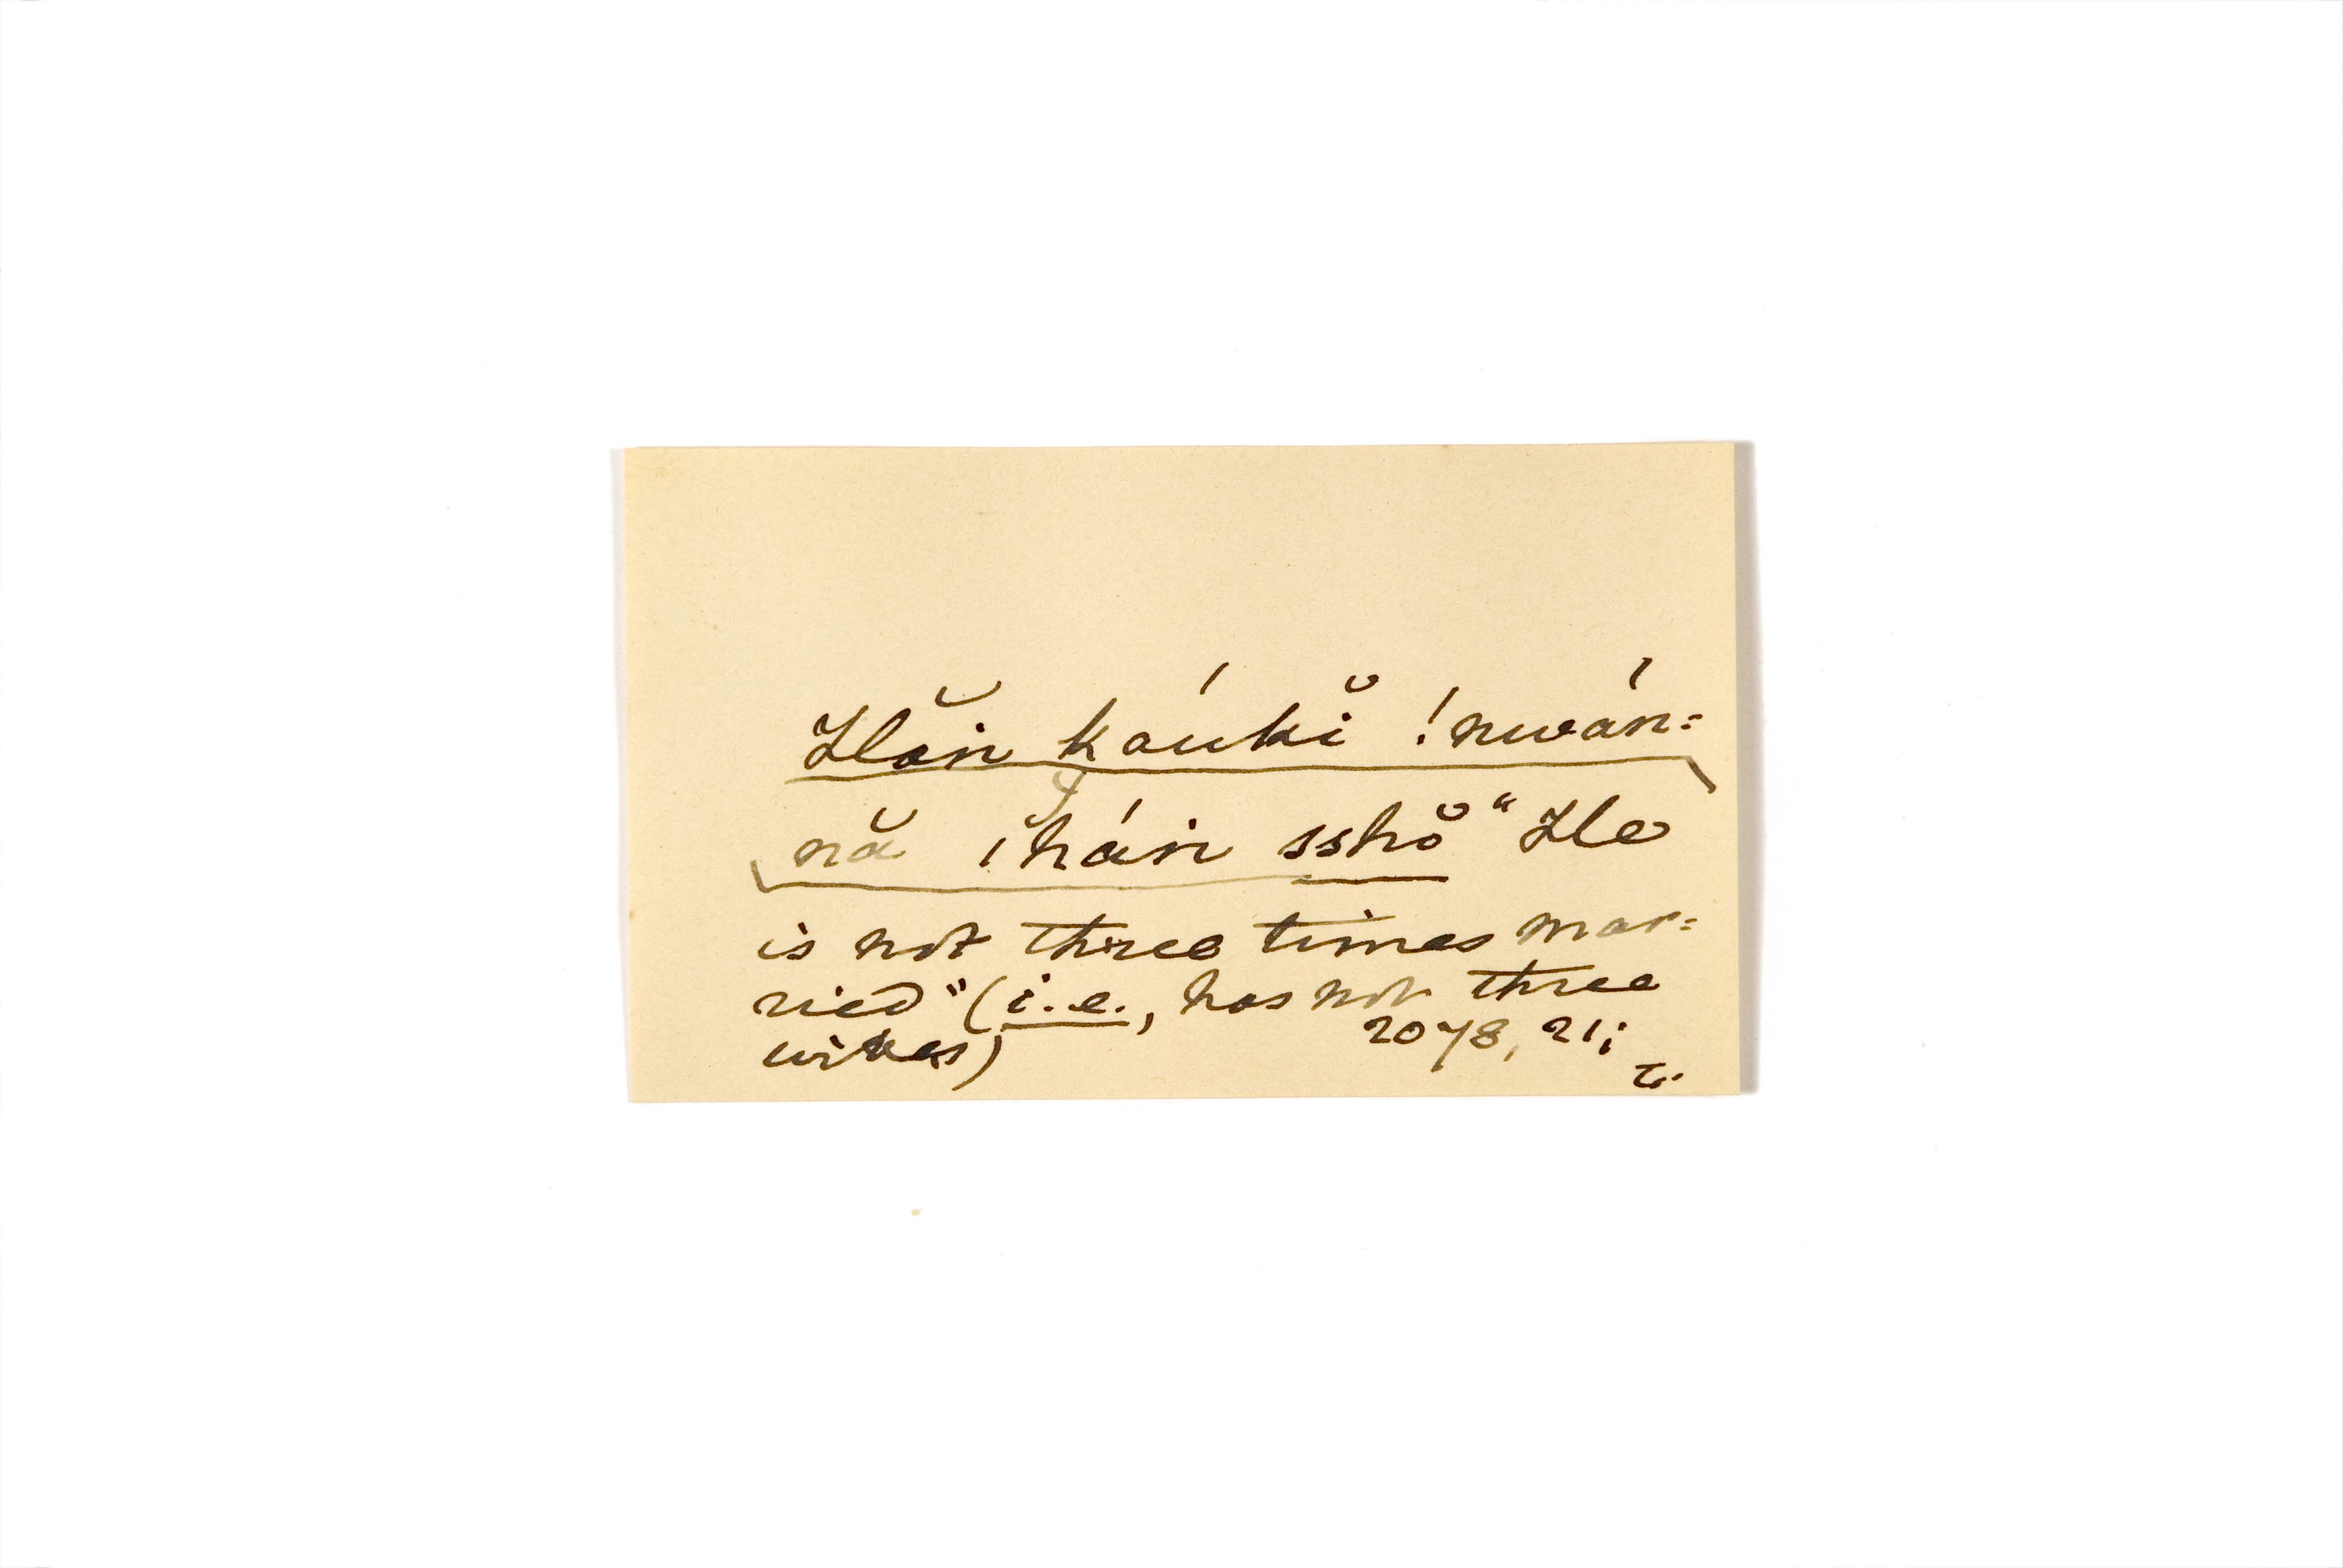 Hăn káukĭ !nwán=
nă ĭhán sshŏ "He
is not three times mar=
ried" (i.e., has not three
wives) 2078, 21;